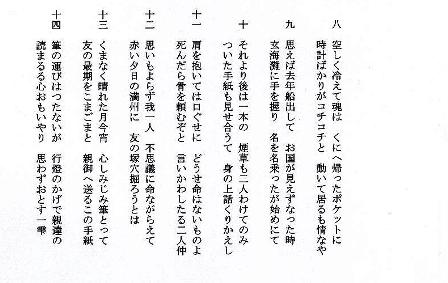 八 空しく冷えて魂は くにへ帰ったポケットに
時計ばかりがコチコチと 動いて居るも情なや
九 思えば去年船出して お国が見えずなった時
玄海灘に手を握り 名を名乗ったが始めにて
十 それより後は一本の 煙草も二人わけてのみ
ついた手紙も見せ合うて 身の上話くりかえし
十一 肩を抱いては口ぐせに どうせ命はないものよ
死んだら骨を頼むぞと 言いかわしたる二人仲
十二 思いもよらず我一人 不思議に命ながらえて
赤い夕日の満州に 友の塚穴掘ろうとは
十三 くまなく晴れた月今宵 心しみじみ筆とって
友の最期をこまごまと 親御へ送るこの手紙
十四 筆の運びはつたないが 行燈のかげで親達の
読まるる心おもいやり 思わずおとす一雫